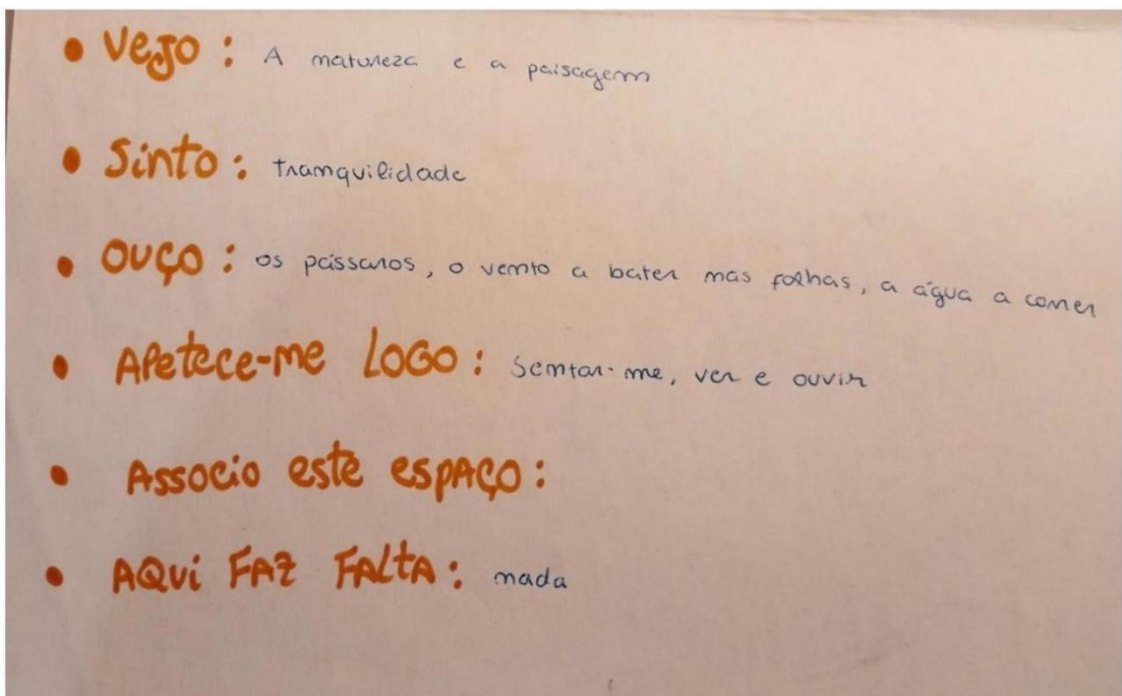 • Vejo : A natureza e a paisagem
• Sinto : tranquilidade
• OUÇO : os pássaros, o vento a bater nas folhas, a água a correr
• APetece-me LOGO : Sentar-me, ver e ouvir
• Associo este espAço :
• AQui FAZ FALtA : nada